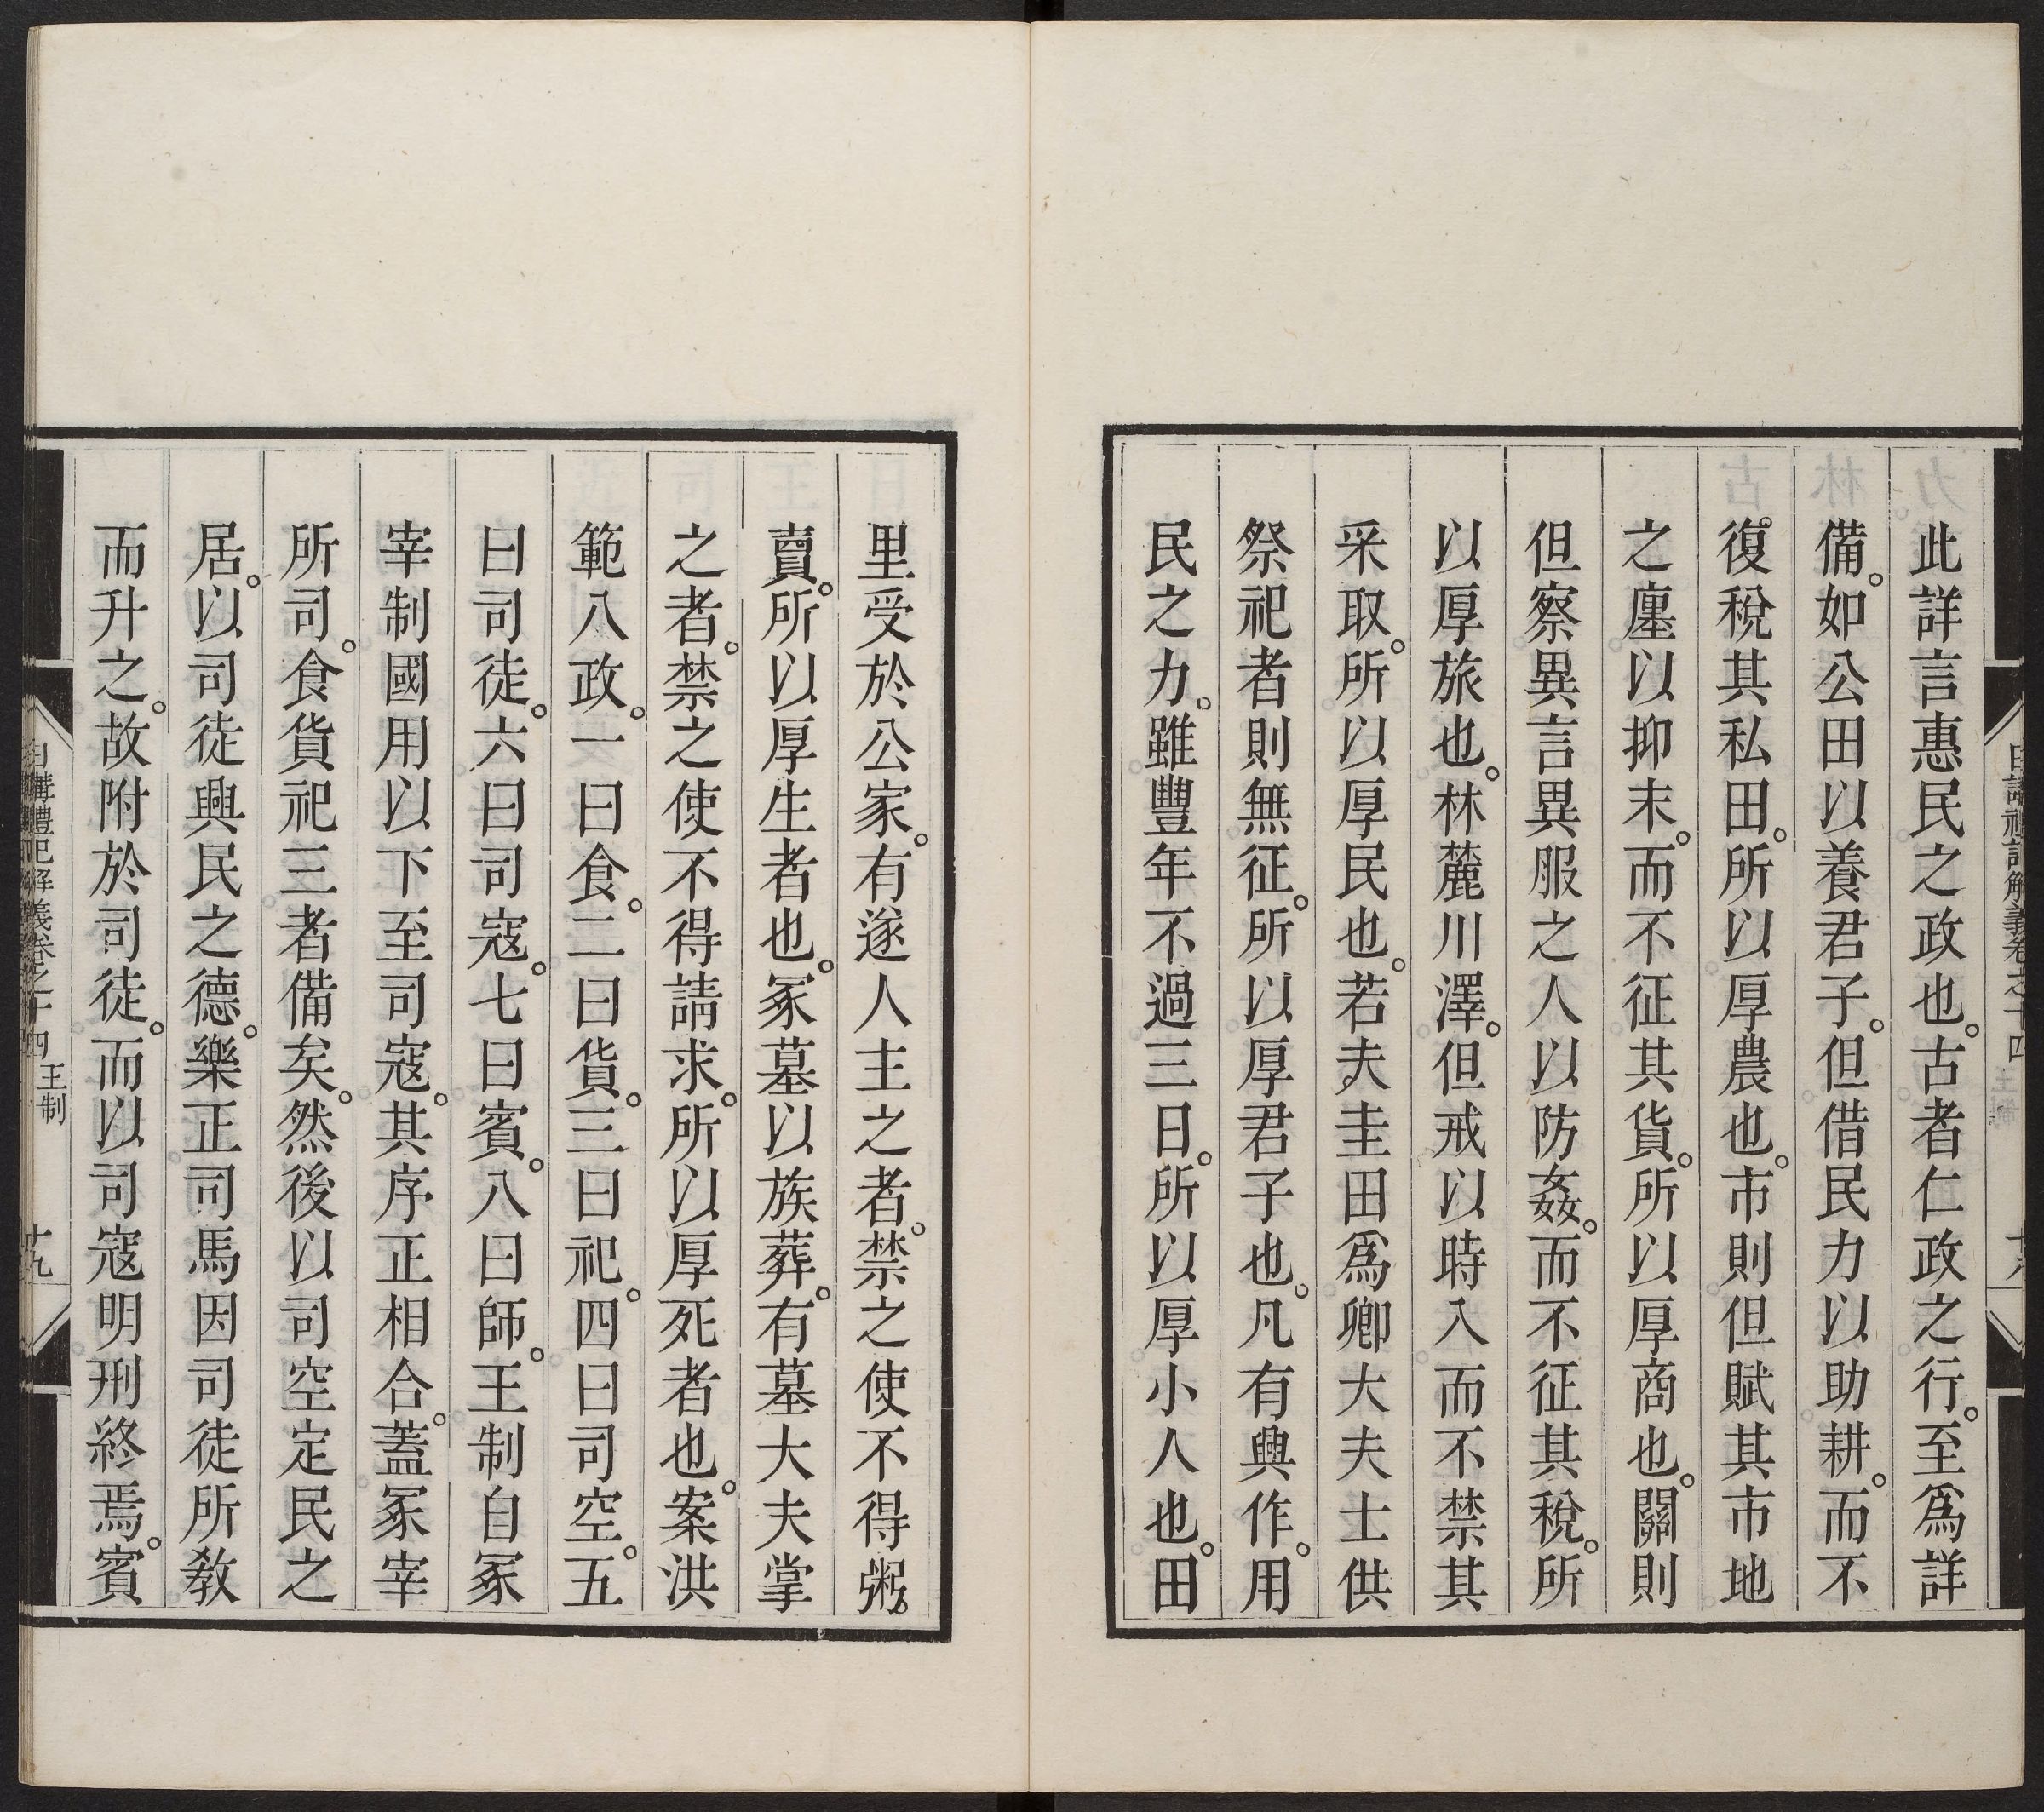 此詳言惠民之政也。古者仁政之行。至爲詳
備。如公田以養君子。但借民力以助耕。而不
復稅其私田。所以厚農也。市則但賦其市地
之廛以抑末。而不征其貨。所以厚商也。關則
但察異言異服之人以防姦。而不征其稅。所
以厚旅也。林麓川澤。但戒以時入而不禁其
采取。所以厚民也。若夫圭田爲卿大夫士供
祭祀者則無征。所以厚君子也。凡有興作。用
民之力。雖豐年不過三日。所以厚小人也。田
里受於公家。有遂人主之者。禁之使不得粥
賣。所以厚生者也。冢墓以族葬。有墓大夫掌
之者。禁之使不得請求。所以厚死者也。案洪
範八政。一曰食。二曰貨。三曰祀。四曰司空。五
曰司徒。六曰司寇。七曰賓。八曰師。王制自冢
宰制國用以下至司寇。其序正相合。蓋冢宰
所司。食貨祀三者備矣。然後以司空定民之
居。以司徒興民之德。樂正司馬因司徒所敎
而升之。故附於司徒。而以司寇明刑終焉。賓
日講禮記解義卷之十四 王制 十九